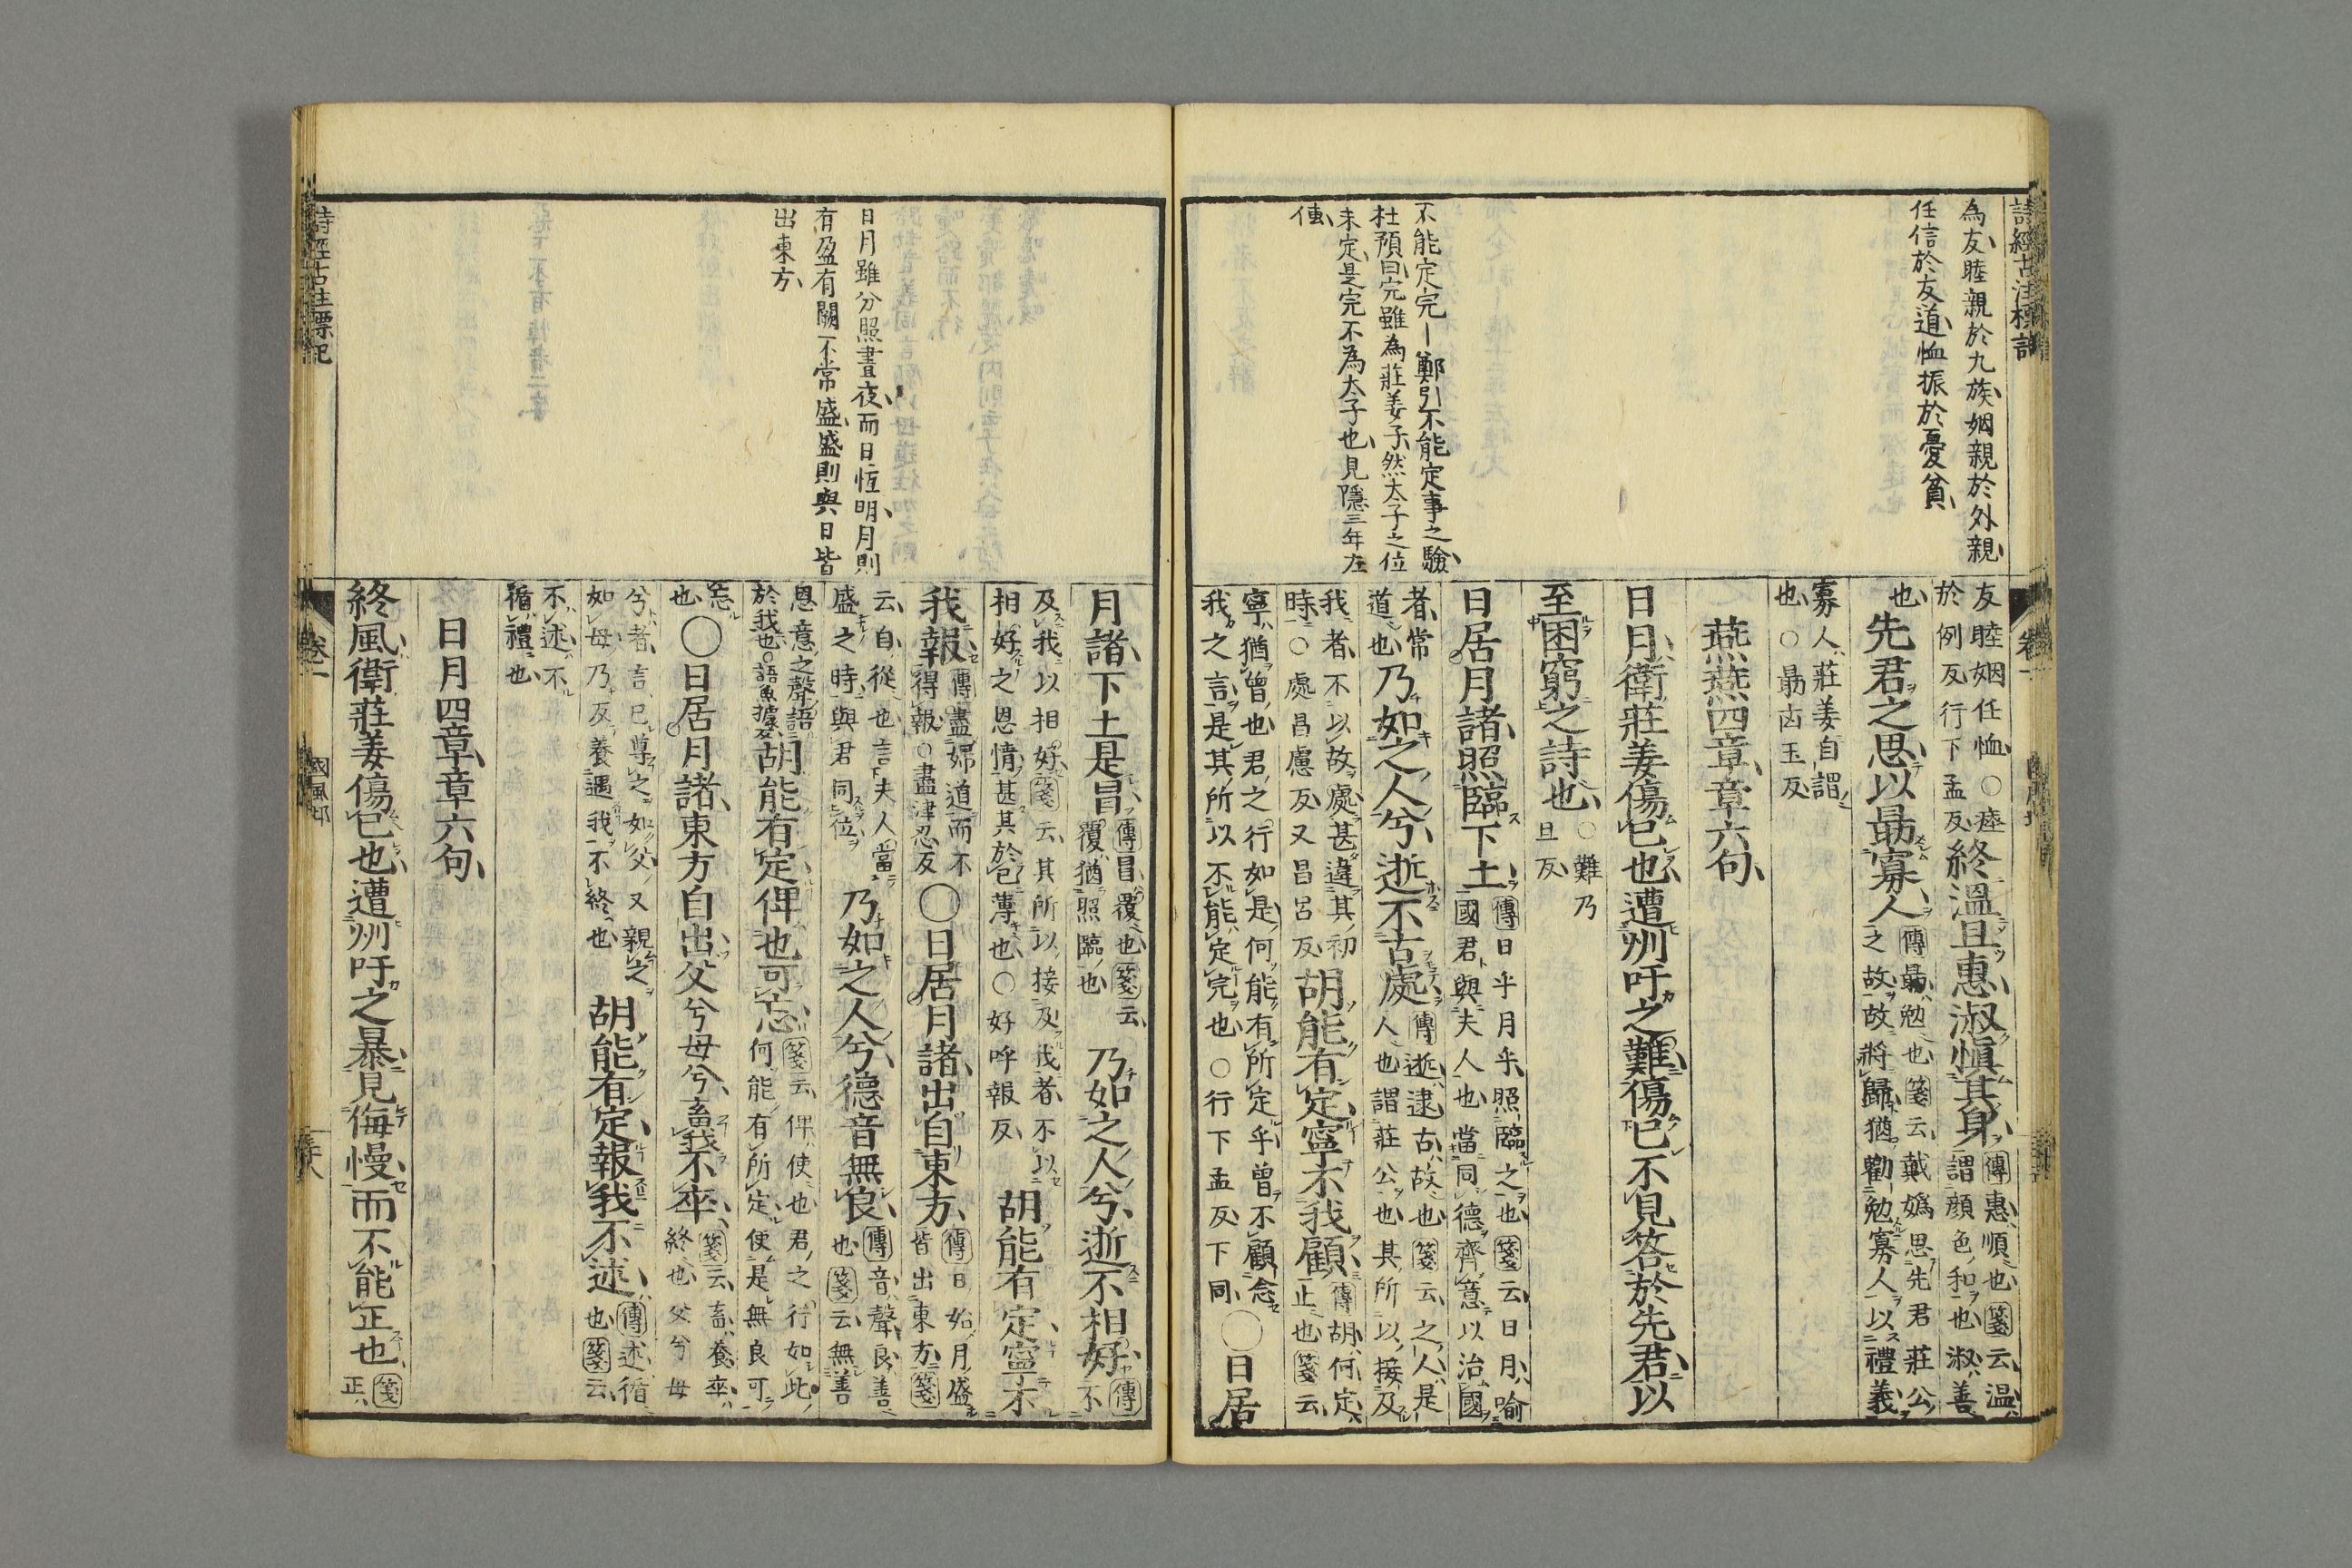 為友睦親於九族姻親於外親
任信於友道恤振於憂貧
不能定完―鄭引不能定事之驗
杜預曰完雖為莊姜子然太子之位
未定是完不為太子也見隱三年左
傳
友睦姻任恤○睦
於例反行下孟反
終溫且惠淑愼其身
傳惠順也箋云溫
謂顔色和也淑善
也
先君之思以勗寡人
傳勗勉也箋云戴嬀思先君莊公
之故故將歸猶勸勉寡人以禮義
寡人莊姜自謂
也○勗凶玉反
燕燕四章章六句
日月衛莊姜傷已也遭州吁之難傷已不見答於先君以
至困窮之詩也
○難乃
旦反
日居月諸照臨下土
傳日乎月乎照臨之也箋云日月喻
國君與夫人也當同德齊意以治國
者常
道也
乃如之人兮逝不古處
傳逝逮古故也箋云之人是
人也謂莊公也其所以接及
我者不以故處甚違其初
時○處昌慮反又昌呂反
胡能有定寧不我顧
傳胡何定
止也箋云
寧猶曾也君之行如是何能有所定乎曾不顧念
我之言是其所以不能定完也○行下孟反下同
○日居
月諸下土是冒
傳冒覆也箋云
覆猶照臨也
乃如之人兮逝不相好
傳
不
及我以相好箋云其所以接及我者不以
相好之恩情甚其於已薄也○好呼報反
胡能有定寧不
我報
傳盡婦道而不
得報○盡津忍反
○日居月諸出自東方
傳日始月盛
皆出東方箋
云自從也言夫人當
盛之時與君同位
乃如之人兮德音無良
傳音聲良善
也箋云無善
恩意之聲語
於我也○語魚據反
胡能有定俾也可忘
箋云俾使也君之行如此
何能有所定使是無良可
忘
也
○日居月諸東方自出父兮母兮畜我不卒
箋云畜養卒
終也父兮母
兮者言已尊之如父又親之
如母乃反養遇我不終也
胡能有定報我不述
傳述循
也箋云
不述不
循禮也
日月四章章六句
終風衛莊姜傷已也遭州吁之暴見侮慢而不能正也
箋
正
日月雖分照晝夜而日恆明月則
有盈有闕不常盛盛則與日皆
出東方
詩經古註標記
卷一
國風邶